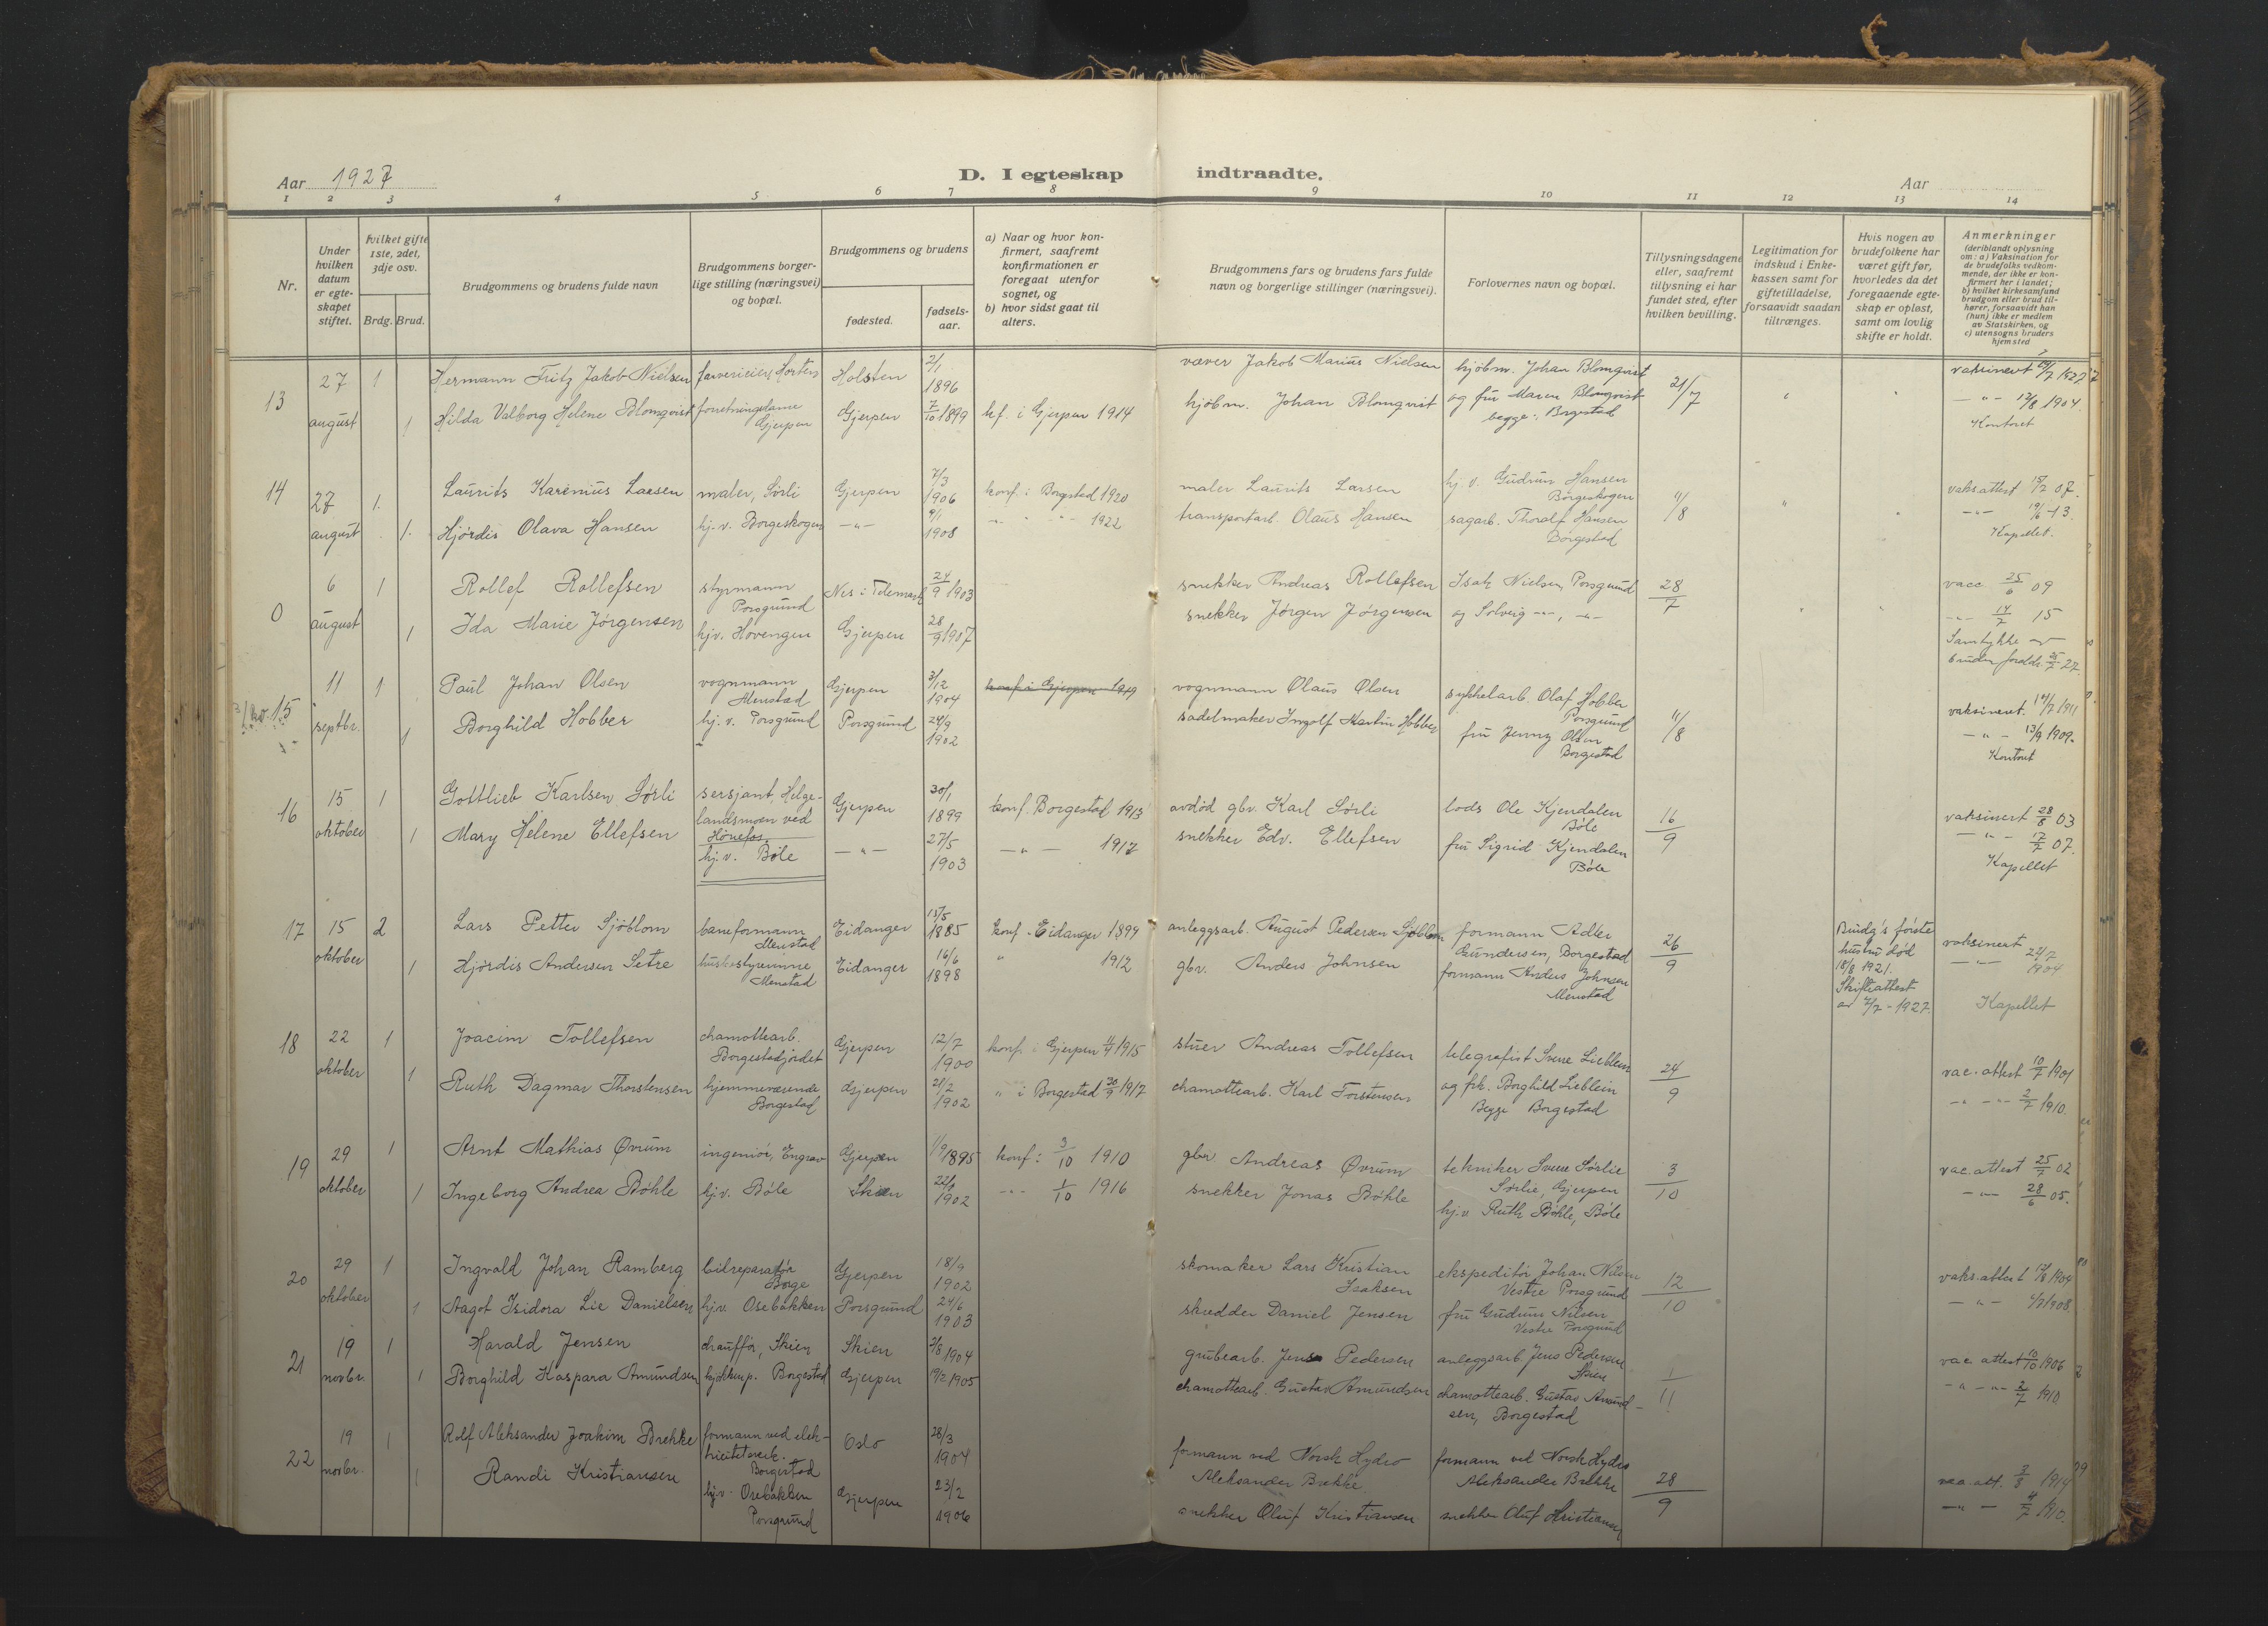 Aar 1927
D. I egteskap indtraadte.
Aar
1 2 3 4 5 6 7 8 9 10 11 12 13 14
Nr.
Under hvilken datum er egteskapet stiftet.
hvilket gifte 1ste, 2det, 3dje osv.
Brdg. Brud.
Brudgommens og brudens fulde navn
Brudgommens borgerlige stilling (næringsvei) og bopæl.
Brudgommens og brudens
fødested.
fødselsaar.
a) Naar og hvor konfirmert, saafremt konfirmationen er foregaat utenfor sognet, og
b) hvor sidst gaat til alters.
Brudgommens fars og brudens fars fulde navn og borgerlige stillinger (næringsvei).
Forlovernes navn og bopæl.
Tillysningsdagene eller, saafremt tillysning ei har fundet sted, efter hvilken bevilling.
Legitimation for indskud i Enkekassen samt for giftetilladelse, forsaavidt saadan tiltrænges.
Hvis nogen av brudefolkene har været gift før, hvorledes da det foregaaende egteskap er opløst, samt om lovlig skifte er holdt.
Anmerkninger (deriblandt oplysning om: a) Vaksination for de brudefolks vedkommende, der ikke er konfirmert her i landet; b) hvilket kirkesamfund brudgom eller brud tilhører, forsaavidt han (hun) ikke er medlem av Statskirken, og c) utensogns bruders hjemsted
13 27 august 1 Hermann Fritz Jakob Nielsen farverieier, Horten Holsten 2/1 1896 væver Jakob Marius Nielsen hjøbm. Johan Blomqvist 21/7 vaksinert 1927
1 Hilda Valborg Helene Blomqvist forretningsdame Gjerpen Gjerpen 7/10 1899 kf. i Gjerpen 1914 kjøbm. Johan Blomqvist og fru Maren Blomqvist begge: Borgestad 12/8 1904. Kontoret
14 27 august 1. Laurits Karenius Larsen maler, Sørli Gjerpen 7/3 1906 konf. i Borgestad 1920 maler Laurits Larsen hj. v. Gudrun Hansen Borgeskogen 11/8 vaks.attest 07.
1. Hjørdis Olava Hansen hj. v. Borgeskogen -"- 1908 -"- 1922 transportarb. Olaus Hansen sagarb. Thoralf Hansen Borgestad -"- 19/6-13. Kapellet.
0 6 august 1 Rollef Rollefsen styrmann Porsgrund Nes i Telemark 24/9 1903 snekker Andreas Rollefsen Isak Nielsen, Porsgrund 28/7 vacc 25/6 09
1 Ida Marie Jørgensen hjv. Hovengen Gjerpen 28/9 1907 snekker Jørgen Jørgensen og Solveig -"-, -"- -"- 14/7 15
Samtykke brudens foreldr. 25/7 27.
15 11 septbr. 1 Paul Johan Olsen vognmann Menstad Gjerpen 3/12 1904 konf. i Gjerpen 1919 vognmann Olaus Olsen sykkelarb. Olaf Hobber Porsgrund 11/8 vaksinert. 14/7 1911
1 Borghild Hobber hj. v. Porsgrund Porsgrund 24/9 1902 sadelmaker Ingolf Martin Hobber fru Jenny Olsen Borgestad -"- 13/9 1909. Kontoret
16 15 oktober 1 Gottlieb Karlsen Sørli sersjant, Helgelandsmoen ved Hønefos Gjerpen 30/1 1899 konf. Borgestad 1913 avdød gbr. Karl Sørli lods Ole Kjendalen Bøle 16/9 vaksinert 28/8 03
1 Mary Helene Ellefsen hj. v. Bøle -"- 27/5 1903 -"- 1917 snekker Edv. Ellefsen fru Sigrid Kjendalen Bøle -"- 17/7 07. Kapellet
17 15 oktober 2 Lars Petter Sjøblom baneformann Menstad Eidanger 15/5 1885 konf. Eidanger 1899 anleggsarb. August Pedersen Sjøblom formann Adler Gundersen, Borgestad 26/9 Brudg's første hustru død 18/8 1921. Skifteattest av 7/7-1927. vaksinert
1 Hjørdis Andersen Setre husbestyrerinne Menstad Eidanger 16/6 1898 " 1912 gbr. Anders Johnsen formann Anders Johnsen Menstad -"- 24/7 1904 Kapellet
18 22 oktober 1 Joacim Tollefsen chamottearb. Borgestadjordet Gjerpen 12/7 1900 konf. i Gjerpen 11/4 1915 stuer Andreas Tollefsen telegrafist Sverre Lieblein 24/9 vac. attest 10/7 1901
1 Ruth Dagmar Thorstensen hjemmeværende Borgestad Gjerpen 21/2 1902 " i Borgestad 30/9 1917 chamottearb. Karl Torstensen og frk. Borghild Lieblein Begge Borgestad -"- -"- 2/7 1910.
19 29 oktober 1 Arnt Mathias Øvrum ingeniør, Engrav Gjerpen 1/9 1895 konf: 3/10 1910 gbr Andreas Øvrum tekniker Sverre Sørlie Sørlie, Gjerpen 3/10 vac. attest 25/7 02
1 Ingeborg Andrea Bøhle hj.v. Bøle Skien 1902 -"- 1/10 1916 snekker Jonas Bøhle hj.v. Ruth Bøhle, Bøle -"- 28/6 05.
20 29 oktober 1 Ingvald Johan Ramberg bilreparatør Borge Gjerpen 18/9 1902 skomaker Lars Kristian Isaksen ekspeditør Johan Nilsen Vestre Porsgrund 12/10 vaks.attest 1904
1 Aagot Isidora Lie Danielsen hj.v. Osebakken Porsgrund 24/6 1903 skredder Daniel Jensen fru Gudrun Nilsen Vestre Porsgrund -"- 1908.
21 19 novbr. 1 Harald Jensen chauffør, Skien Skien 3/8 1904 grubearb. Jens Pedersen anleggsarb. Jens Pedersen Skien 1/11 vac attest 10/10 1906
1 Borghild Kaspara Amundsen kjøkkenp. Borgestad Gjerpen 1905 chamottearb. Gustav Amundsen chamottearb. Gustav Amundsen, Borgestad -"- -"- 2/7 1910
22 19 novbr. 1 Rolf Aleksander Joakim Brekke formann ved elektricitetsverk. Borgestad Oslo 28/3 1904 formann ved Norsk Hydro Aleksander Brekke formann ved Norsk Hydro Aleksander Brekke 28/9 vac. att. 1914
1 Randi Kristiansen hj.v. Osebakken Porsgrund Gjerpen 23/2 1906 snekker Oluf Kristiansen snekker Oluf Kristiansen -"- 1910.